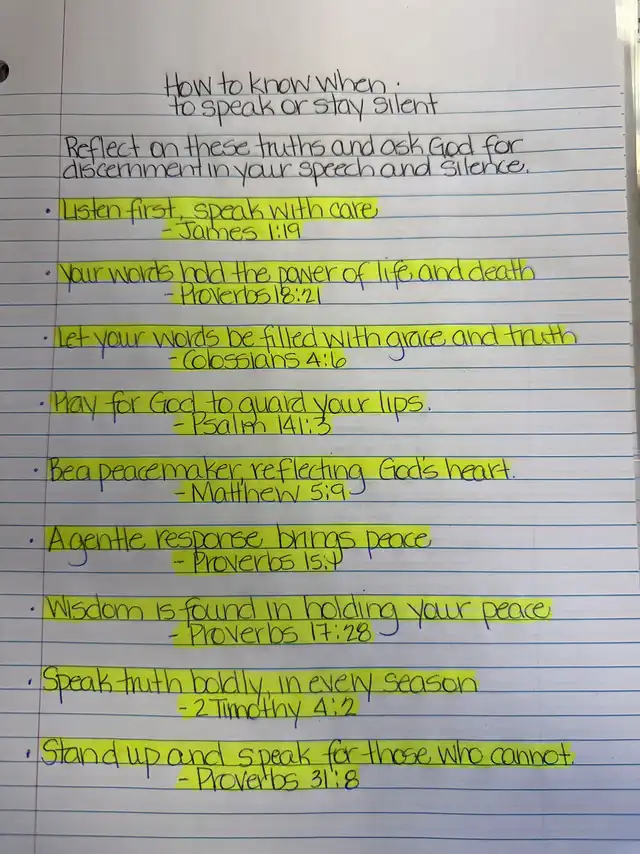 How to know when
to speak or stay silent
Reflect on these truths and ask God for
discernment in your speech and silence.
• Listen first, speak with care
- James 1:19
• Your words hold the power of life and death
- Proverbs 18:21
• Let your words be filled with grace and truth
- Colossians 4:6
• Pray for God to guard your lips.
- Psalm 141:3
• Be a peacemaker, reflecting God's heart.
- Matthew 5:9
• A gentle response brings peace
- Proverbs 15:1
• Wisdom is found in holding your peace
- Proverbs 17:28
• Speak truth boldly, in every season
- 2 Timothy 4:2
• Stand up and speak for those who cannot.
- Proverbs 31:8